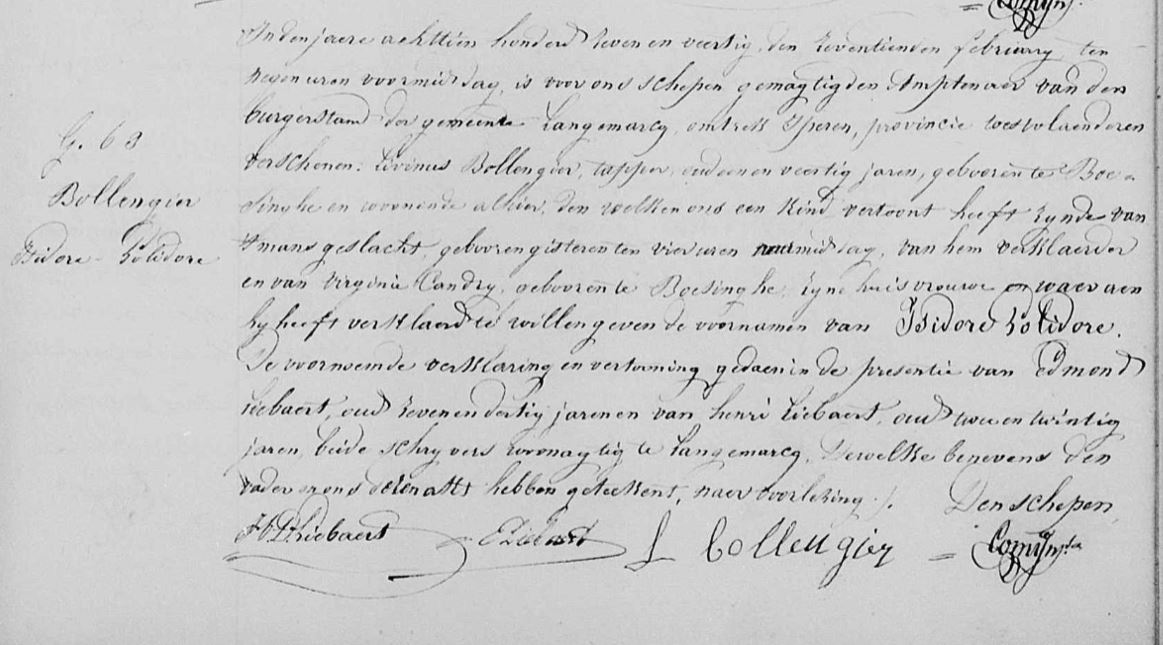 Comyn
In den jaere achttien honderd zeven en veertig, den zeventienden february ten
negen uren voormiddag, is voor ons schepen gemagtigden Amptenaer van den
burgerstand der gemeente Langemarcq, omtrek Yperen, provincie westvlaenderen
verschenen: Livinus Bollengier, tapper, oud een en veertig jaren, gebooren te Boe-
singhe en woonende alhier, den welken ons een kind vertoont heeft zynde van
t'mans geslacht, gebooren gisteren ten vier uren namiddag, van hem verklaerder
en van Virginie Candry, gebooren te Boesinghe, zyne huisvrouwe en waer aen
hy heeft verklaerd te willen geven de voornamen van Isidore Polidore.
De voornoemde verklaring en vertooning gedaen in de presentie van Edmond
Liebaert, oud zeven en dertig jaren en van henri Liebaert, oud twee en twintig
jaren, beide schryvers woonagtig te Langemarcq, Dewelke benevens den
vader en ons dezen akt hebben geteekent, naer voorlezing ./. Den schepen,
G. 63
Bollengier
Isidore - Polidore
Hri Liebaert E Liebaert L Bollengier = Comyn